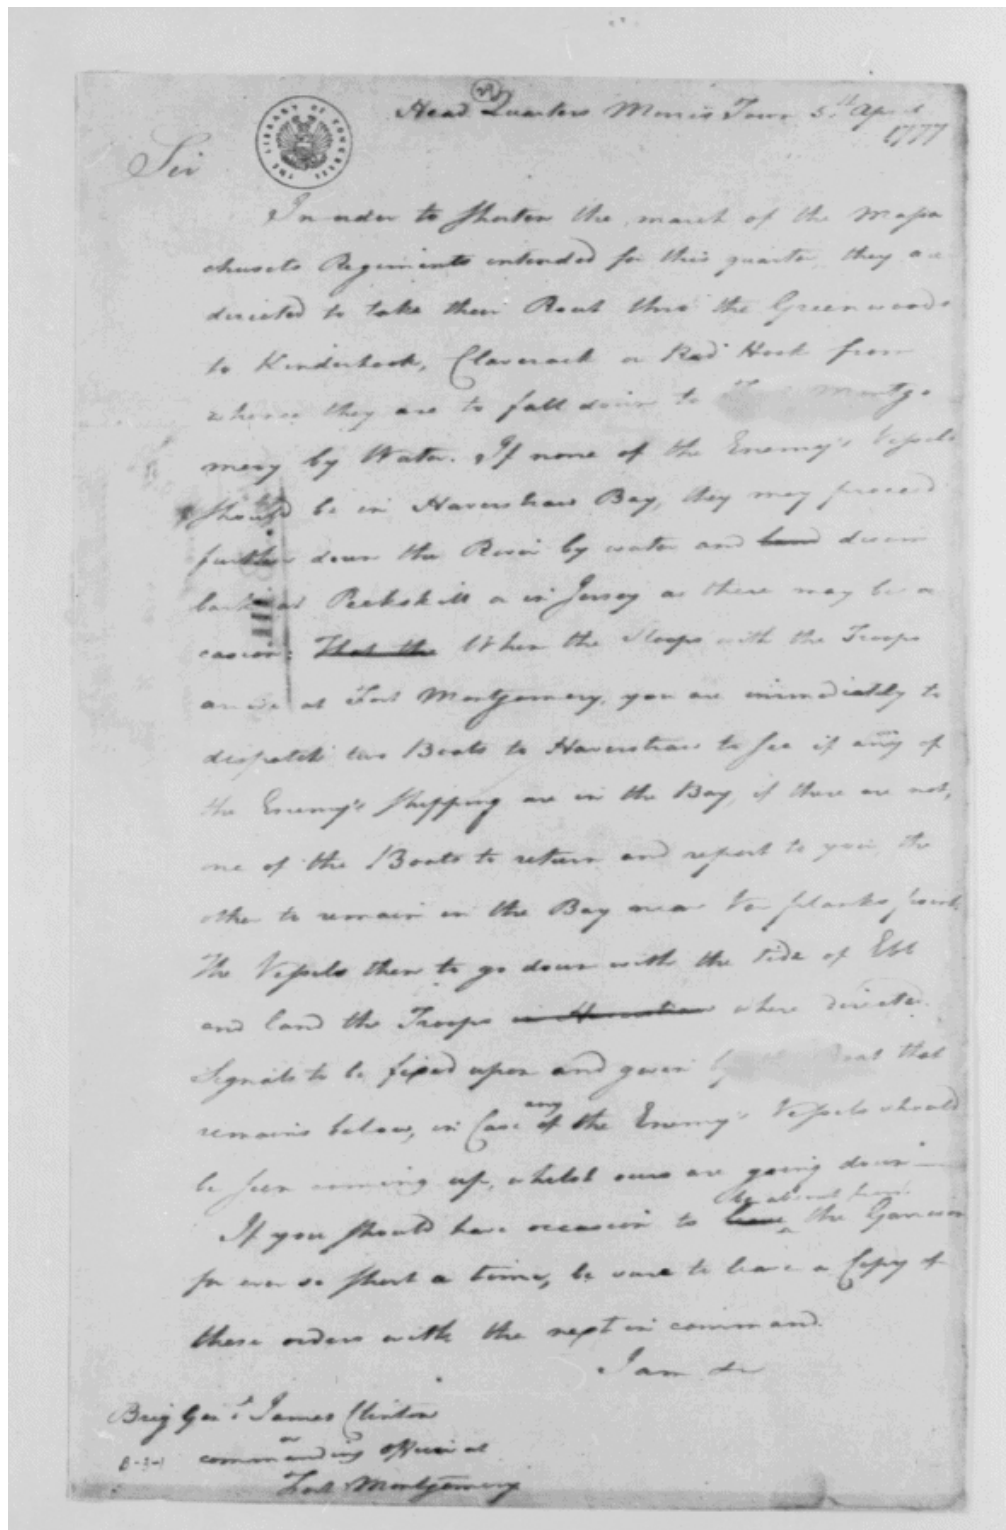 Head Quarters Morris Town 5th April
1777
THE LIBRARY OF CONGRESS
Sir
In order to shorten the march of the Massa
chusets Regiments intended for this quarter, they are
directed to take their Rout thro the Greenwoods
to Kinderhook, Claverack or Red Hook from
whence they are to fall down to Montgo
mery by Water. If none of the Enemy's Vessels
should be in Haverstraw Bay, they may proceed
further down the River by water and land disem
bark at Peekskill or in Jersey as there may be oc
casion: That the When the Sloops with the Troops
arrive at Fort Montgomery, you are immediately to
dispatch two Boats to Haverstraw to see if any of
the Enemy's Shipping are in the Bay, if there are not,
one of the Boats to return and report to you, the
other to remain in the Bay near Ver planks point.
The Vessels then to go down with the tide of Ebb
and land the Troops in Haverstraw where directed.
Signals to be fixed upon and given Boat that
remains below, in Case any of the Enemy's Vessels should
be seen coming up, whilst ours are going down
be absent from
If you should have occasion to leave the Garrison
for ever so short a time, be sure to leave a Copy of
these orders with the next in command.
I am &c
Brig Genl James Clinton
or
commanding officer at
Fort Montgomery